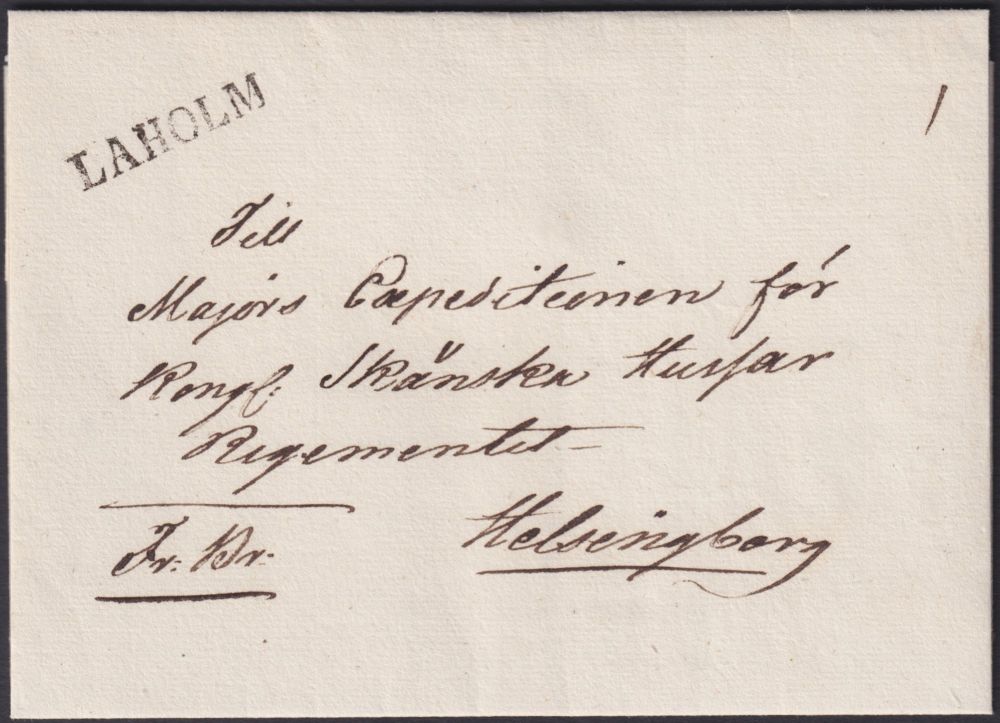 LAHOLM
1
Till
Majors Expeditionen för
Kongl: Skånska Hussar
Regementet
Fr: Br:
Helsingborg